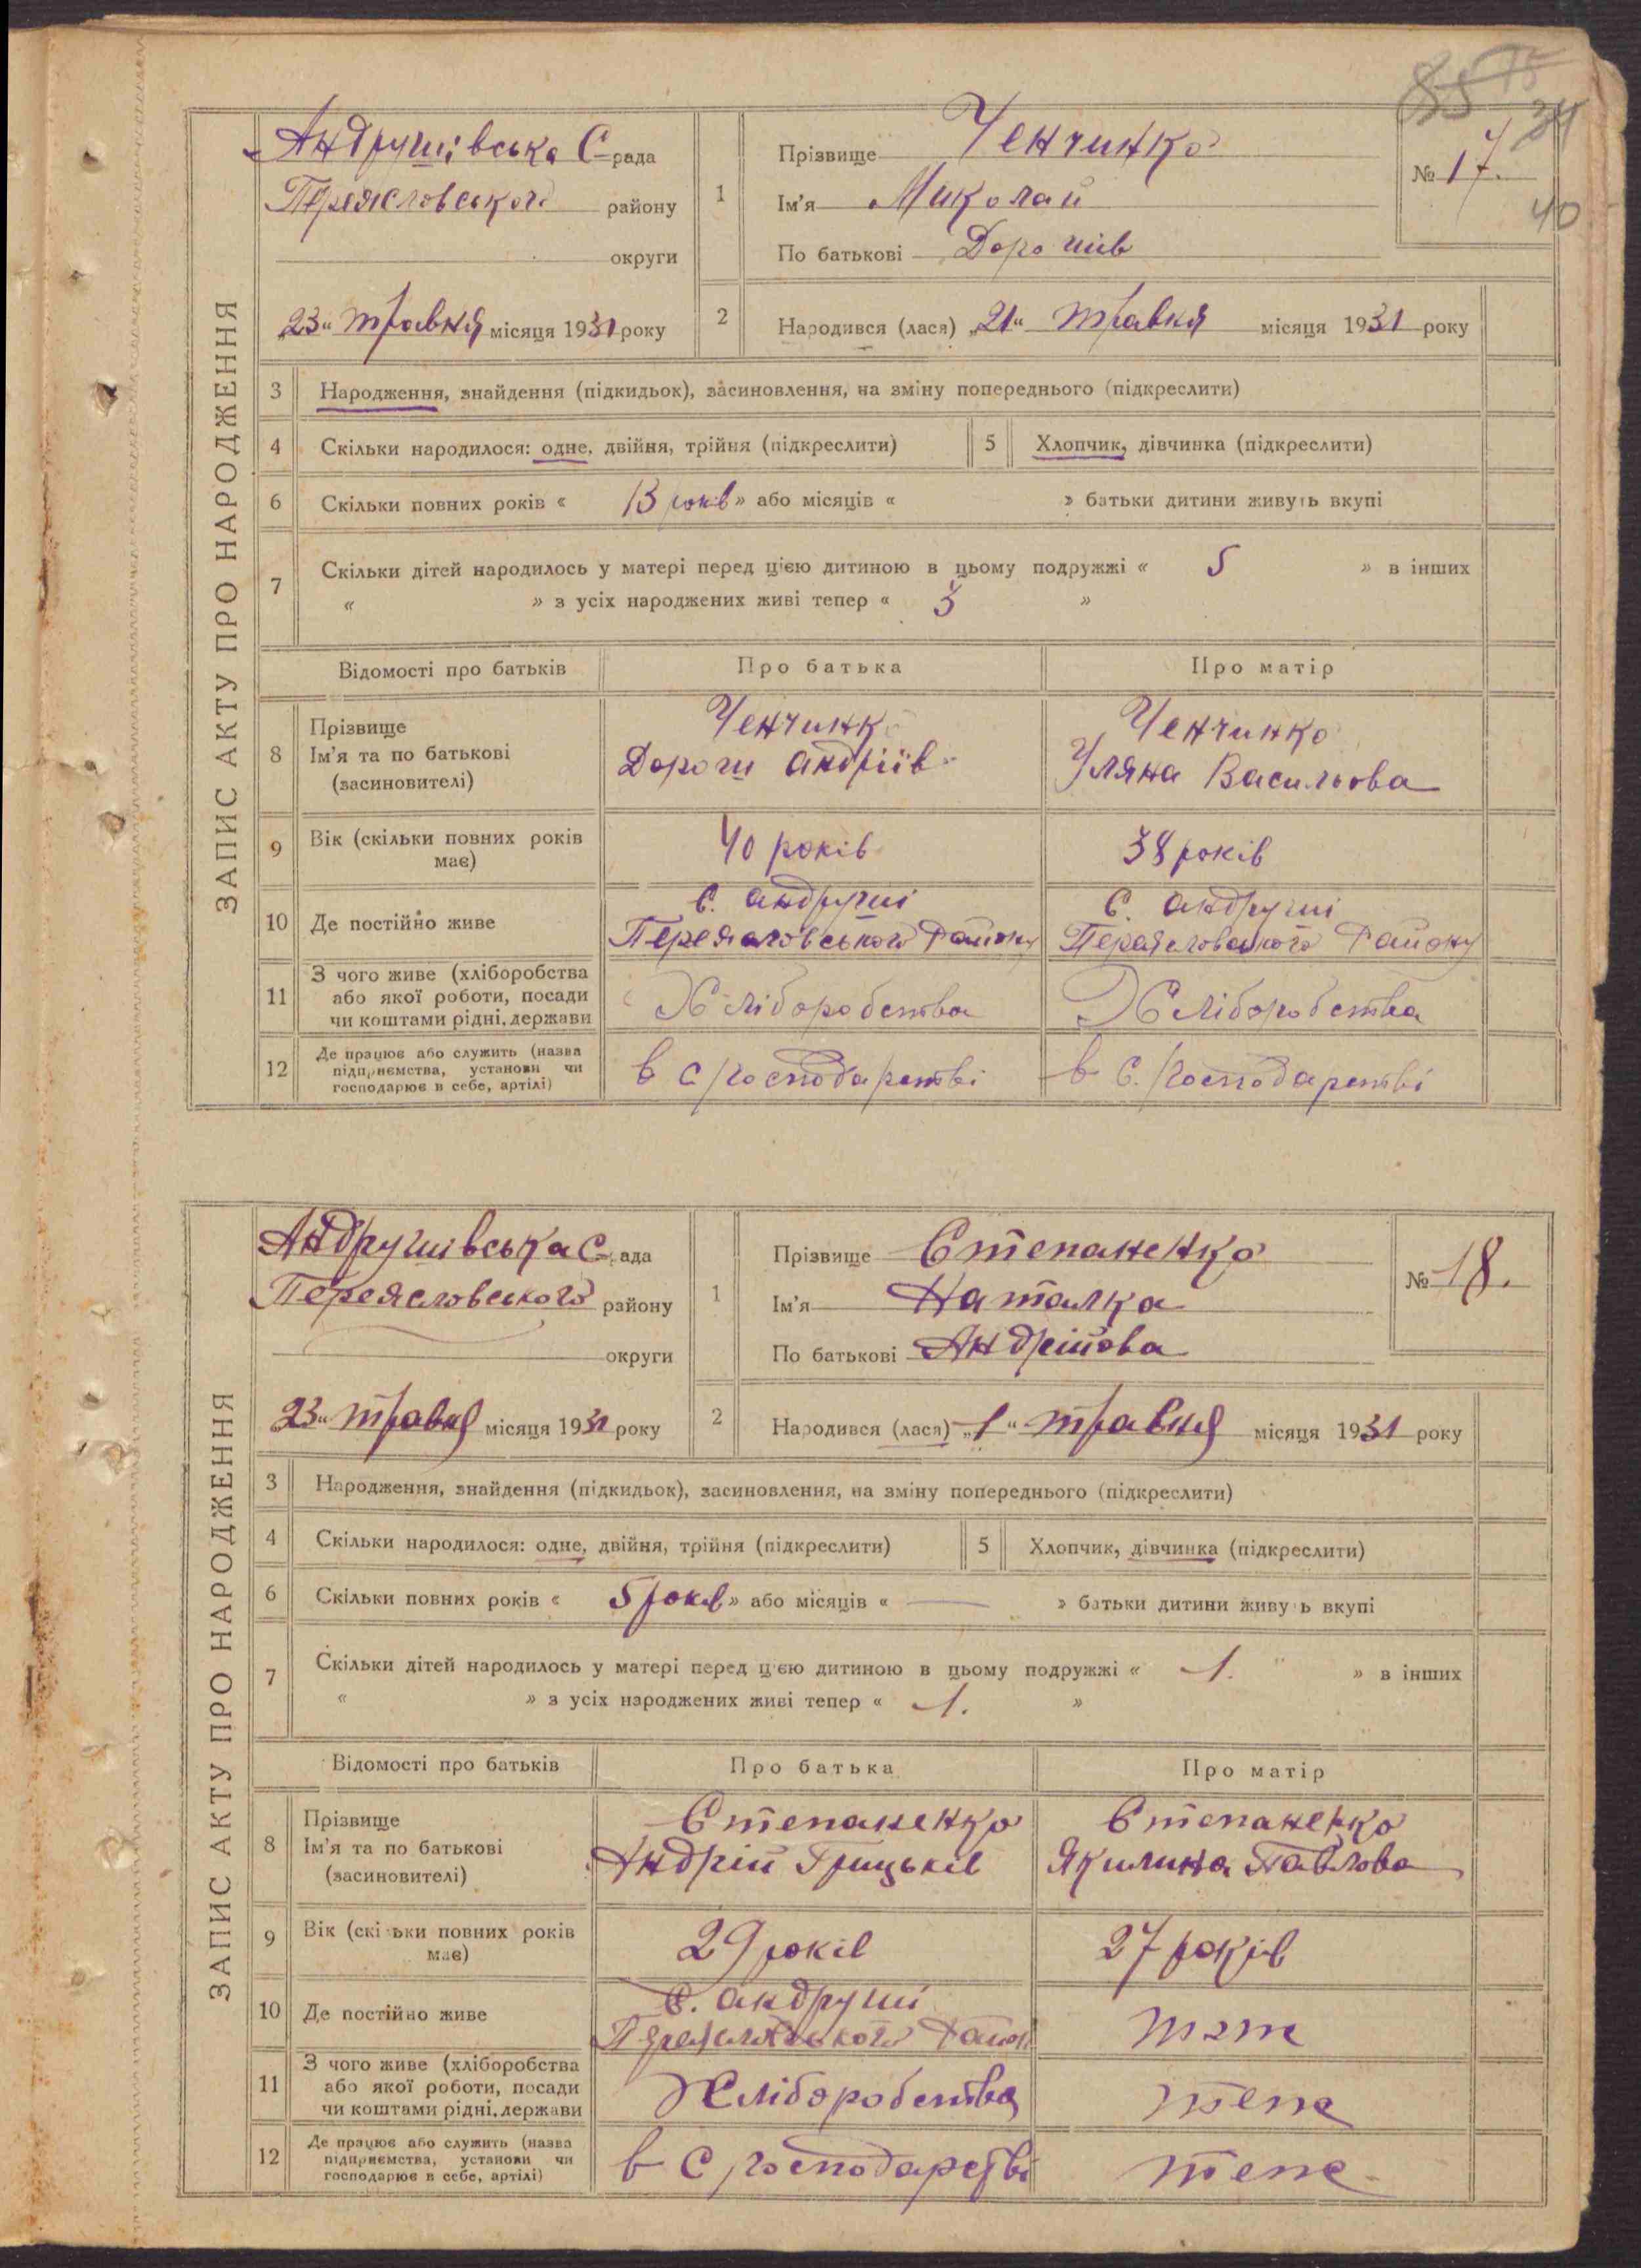 85 75
34
40
ЗАПИС АКТУ ПРО НАРОДЖЕННЯ
Андрушівська С рада
Переясловського району
округи
„23“ травня місяця 1931 року
1
Прізвище Ченчинко
Ім'я Миколай
По батькові Дорошів
№ 17.
2
Народився (лася) „21“ травня місяця 1931 року
3 Народження, знайдення (підкидьок), засиновлення, на зміну попереднього (підкреслити)
4 Скільки народилося: одне, двійня, трійня (підкреслити) 5 Хлопчик, дівчинка (підкреслити)
6 Скільки повних років « 13 років » або місяців « » батьки дитини живуть вкупі
7 Скільки дітей народилось у матері перед цією дитиною в цьому подружжі « 5 » в інших
« » з усіх народжених живі тепер « 3 »
Відомості про батьків Про батька Про матір
8 Прізвище Ім'я та по батькові (засиновителі)
Ченчинко
Дорош Андріїв
Ченчинко
Уляна Васильова
9 Вік (скільки повних років має) 40 років 38 років
10 Де постійно живе
с. Андруші
Переясловського Району
с. Андруші
Переясловського Району
11 З чого живе (хліборобства або якої роботи, посади чи коштами рідні, держави
Хліборобства
Хліборобства
12 Де працює або служить (назва підприємства, установи чи господарює в себе, артілі)
в с господарстві
в с. господарстві
ЗАПИС АКТУ ПРО НАРОДЖЕННЯ
Андрушівська С рада
Переясловського району
округи
„23“ травня місяця 1931 року
1
Прізвище Степаненко
Ім'я Наталка
По батькові Андрійова
№ 18.
2
Народився (лася) „1“ травня місяця 1931 року
3 Народження, знайдення (підкидьок), засиновлення, на зміну попереднього (підкреслити)
4 Скільки народилося: одне, двійня, трійня (підкреслити) 5 Хлопчик, дівчинка (підкреслити)
6 Скільки повних років « 5 років » або місяців « — » батьки дитини живуть вкупі
7 Скільки дітей народилось у матері перед цією дитиною в цьому подружжі « 1. » в інших
« » з усіх народжених живі тепер « 1. »
Відомості про батьків Про батька Про матір
8 Прізвище Ім'я та по батькові (засиновителі)
Степаненко
Андрій Грицьків
Степаненко
Якилина Павлова
9 Вік (скільки повних років має) 29 років 27 років
10 Де постійно живе
с. Андруші
Переясловського Район
теж
11 З чого живе (хліборобства або якої роботи, посади чи коштами рідні, держави
Хліборобства
теж
12 Де працює або служить (назва підприємства, установи чи господарює в себе, артілі)
в с господарстві
теж